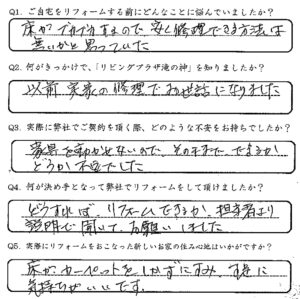 Q1. ご自宅をリフォームする前にどんなことに悩んでいましたか?
床がブカブカするので、安く修理できる方法は
無いかと思っていた
Q2. 何がきっかけで、「リビングプラザ滝の神」を知りましたか?
以前、実家の修理でお世話になりました
Q3. 実際に弊社でご契約を頂く際、どのような不安をお持ちでしたか?
家具を動かせないので、そのままで、できるか?
どうか不安でした
Q4. 何が決め手となって弊社でリフォームをして頂けましたか?
どうすれば、リフォームできるか、担当者より
説明を聞いて、お願いしました
Q5. 実際にリフォームをおこなった新しいお家の住み心地はいかがですか?
床が、カーペットをしかずにすみ、
気持ちがいいです。